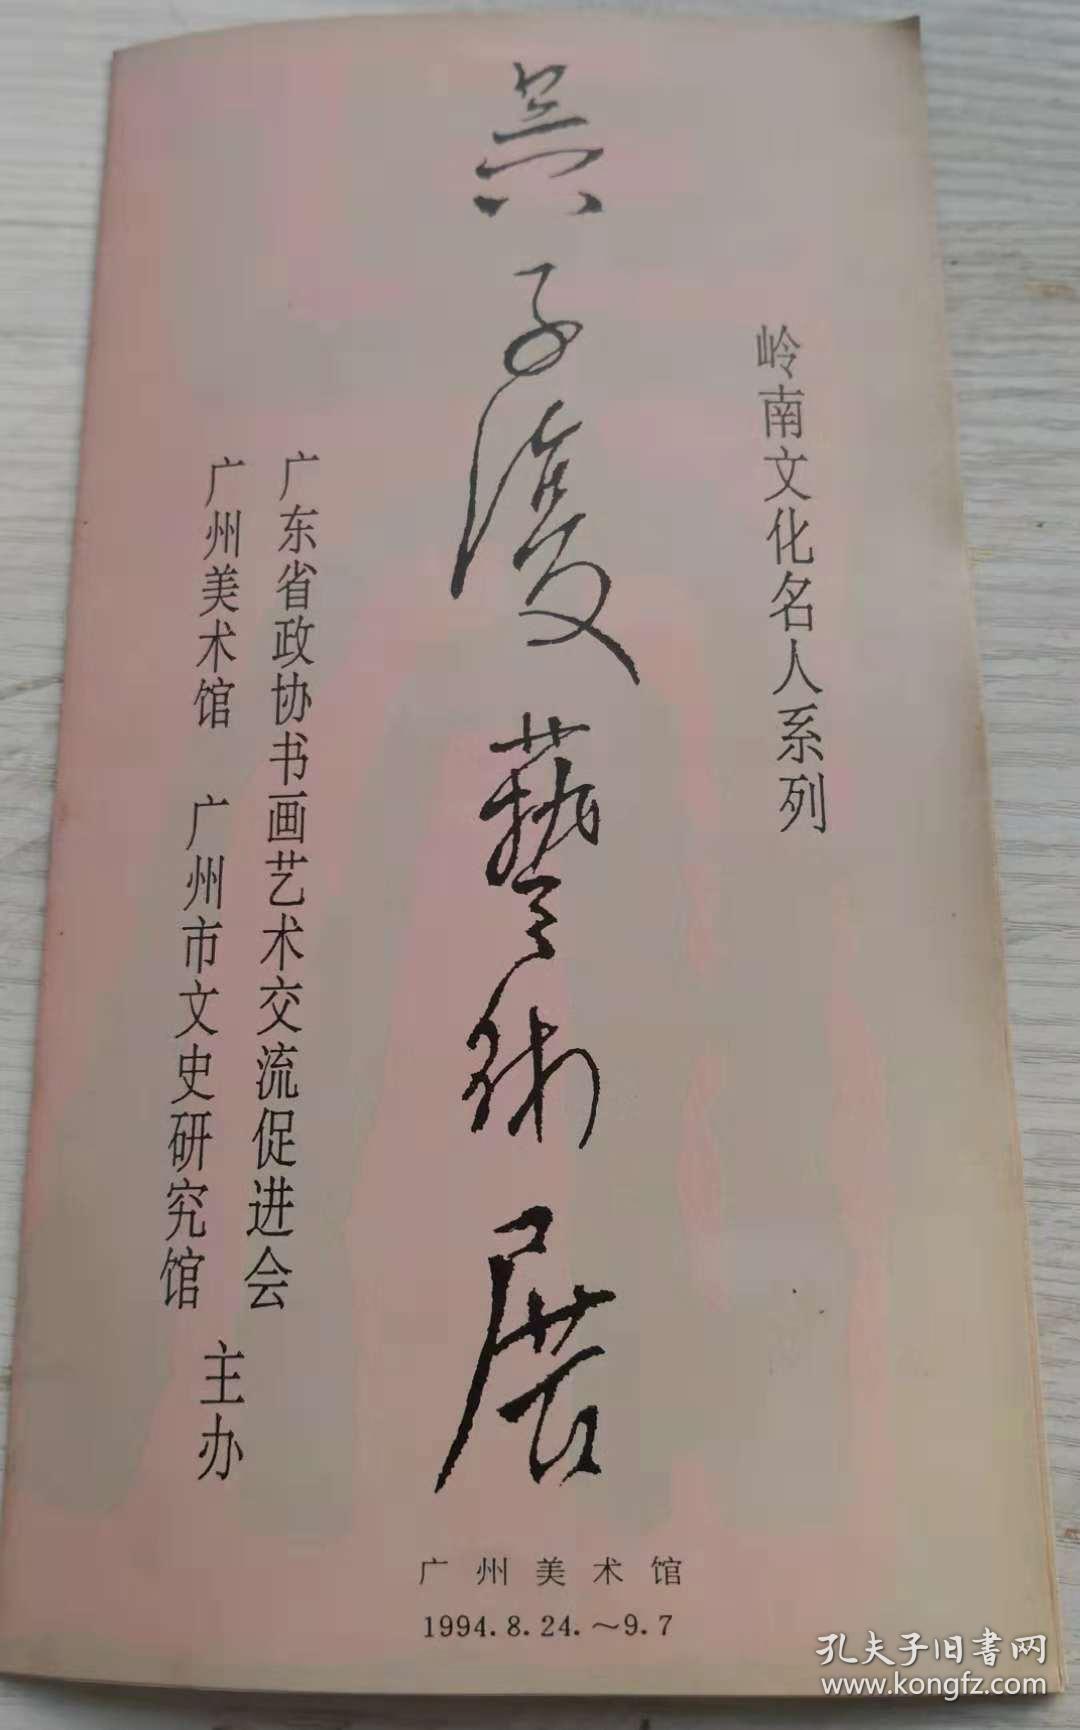 岭南文化名人系列
吴子復藝術展
广东省政协书画艺术交流促进会
广州美术馆 广州市文史研究馆
主办
广州美术馆
1994.8.24.～9.7
孔夫子旧书网
www.kongfz.com